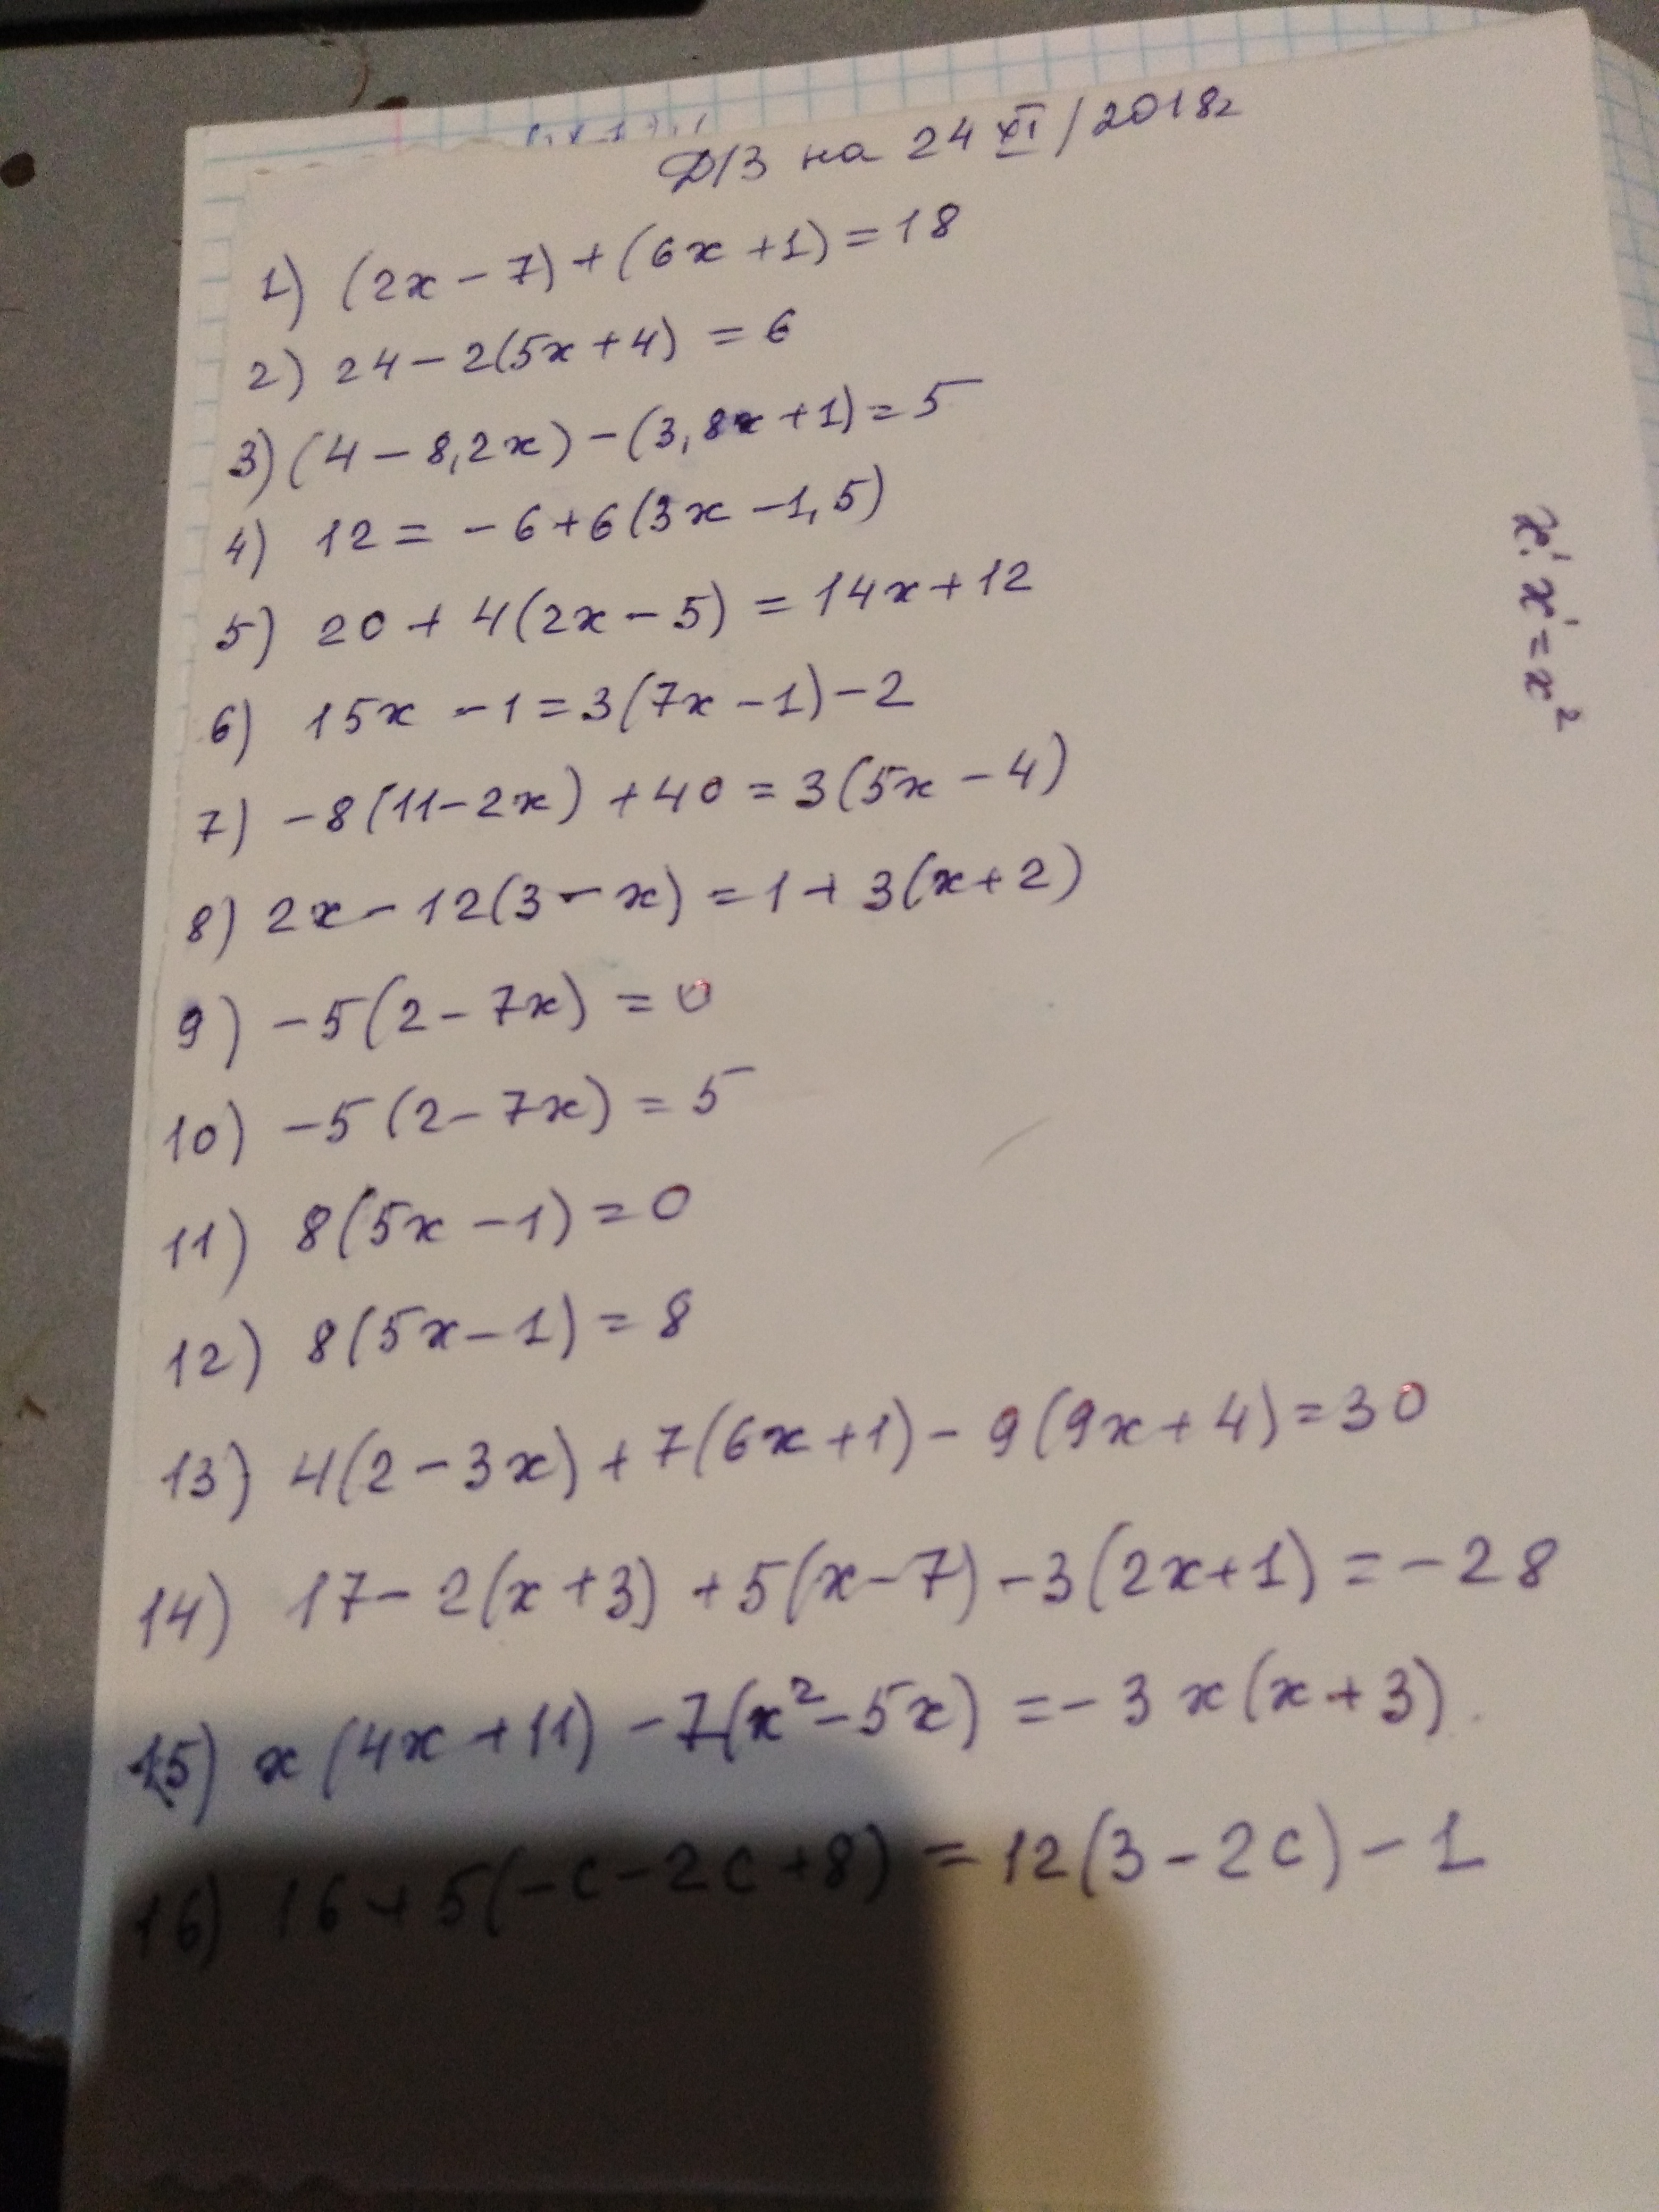 Д/З на 24 XI/2018г
1) (2x - 7) + (6x + 1) = 18
2) 24 - 2(5x + 4) = 6
3) (4 - 8,2x) - (3,8x + 1) = 5
4) 12 = - 6 + 6(3x - 1,5)
5) 20 + 4(2x - 5) = 14x + 12
6) 15x - 1 = 3(7x - 1) - 2
7) -8(11 - 2x) + 40 = 3(5x - 4)
8) 2x - 12(3 - x) = 1 + 3(x + 2)
9) -5(2 - 7x) = 0
10) -5(2 - 7x) = 5
11) 8(5x - 1) = 0
12) 8(5x - 1) = 8
13) 4(2 - 3x) + 7(6x + 1) - 9(9x + 4) = 30
14) 17 - 2(x + 3) + 5(x - 7) - 3(2x + 1) = -28
15) x(4x + 11) - 7(x² - 5x) = -3x(x + 3)
16) 16 + 5(-c - 2c + 8) = 12(3 - 2c) - 1
x¹·x¹=x²